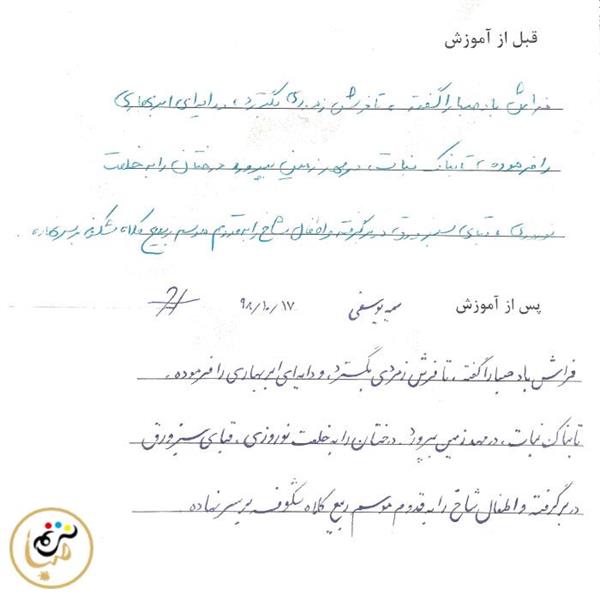 قبل از آموزش
فراش باد صبا را گفته، تا فرش زمردی بگسترد، و دایه‌ی ابر بهاری
را فرموده، تا بنات نبات، در مهد زمین بپرورد درختان را به خلعت
نوروزی، قبای سبز ورق در بر گرفته و اطفال شاخ را به قدوم موسم ربیع کلاه شکوفه بر سر نهاده.
پس از آموزش
سمیه یوسفی ۹۸/۱۰/۱۷
فراش باد صبا را گفته، تا فرش زمردی بگسترد، و دایه‌ی ابر بهاری را فرموده.
تا بنات نبات، در مهد زمین بپرورد. درختان را به خلعت نوروزی، قبای سبز ورق
در بر گرفته و اطفال شاخ را به قدوم موسم ربیع کلاه شکوفه بر سر نهاده.